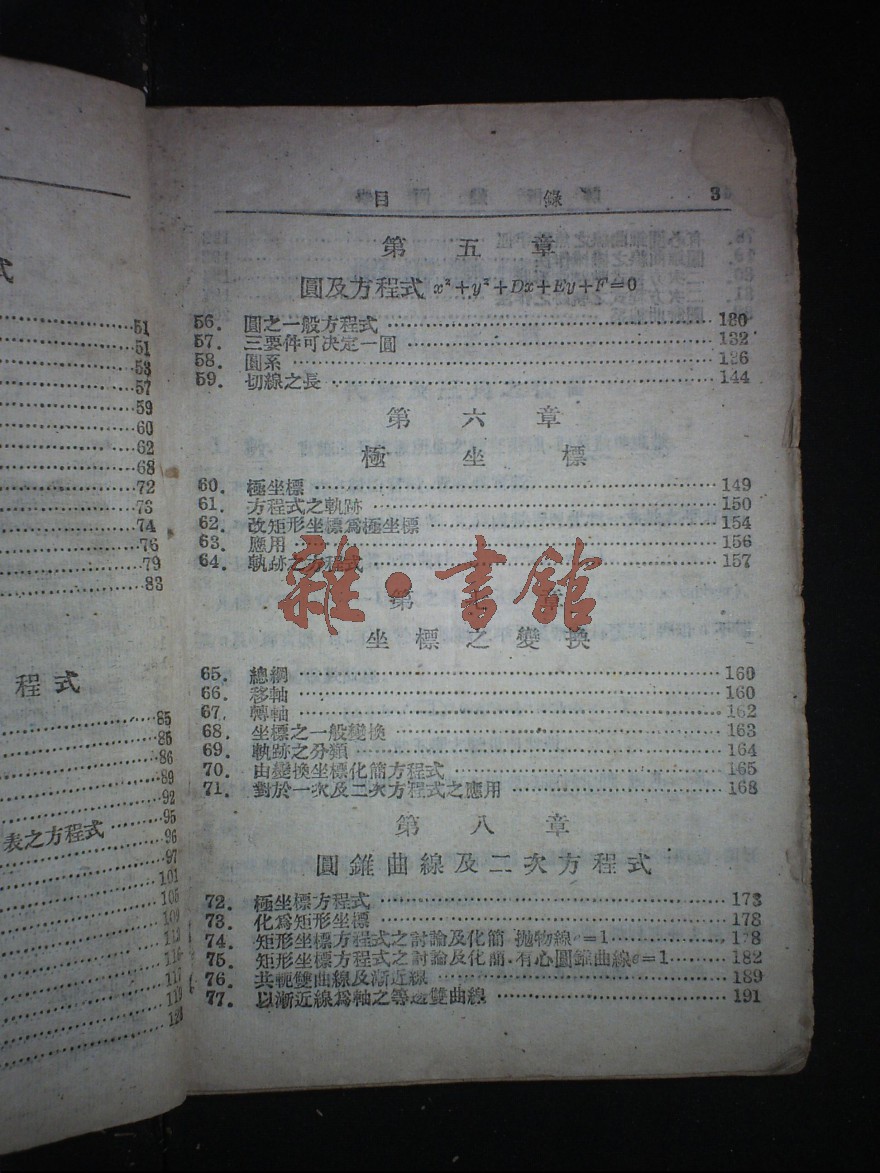 式
51
51
53
57
59
60
62
68
72
73
74
76
79
83
程式
85
85
86
89
92
95
表之方程式
96
97
101
105
117
目 錄 3
第五章
圓及方程式 x²+y²+Dx+Ey+F=0
56. 圓之一般方程式 130
57. 三要件可決定一圓 132
58. 圓系 136
59. 切線之長 144
第六章
極坐標
60. 極坐標 149
61. 方程式之軌跡 150
62. 改矩形坐標爲極坐標 154
63. 應用 156
64. 軌跡之方程式 157
雜·書館
第 章
坐標之變換
65. 總綱 160
66. 移軸 160
67. 轉軸 162
68. 坐標之一般變換 163
69. 軌跡之分類 164
70. 由變換坐標化簡方程式 165
71. 對於一次及二次方程式之應用 168
第八章
圓錐曲線及二次方程式
72. 極坐標方程式 173
73. 化爲矩形坐標 178
74. 矩形坐標方程式之討論及化簡.拋物線e=1 178
75. 矩形坐標方程式之討論及化簡.有心圓錐曲線e=1 182
76. 共軛雙曲線及漸近線 189
77. 以漸近線爲軸之等邊雙曲線 191